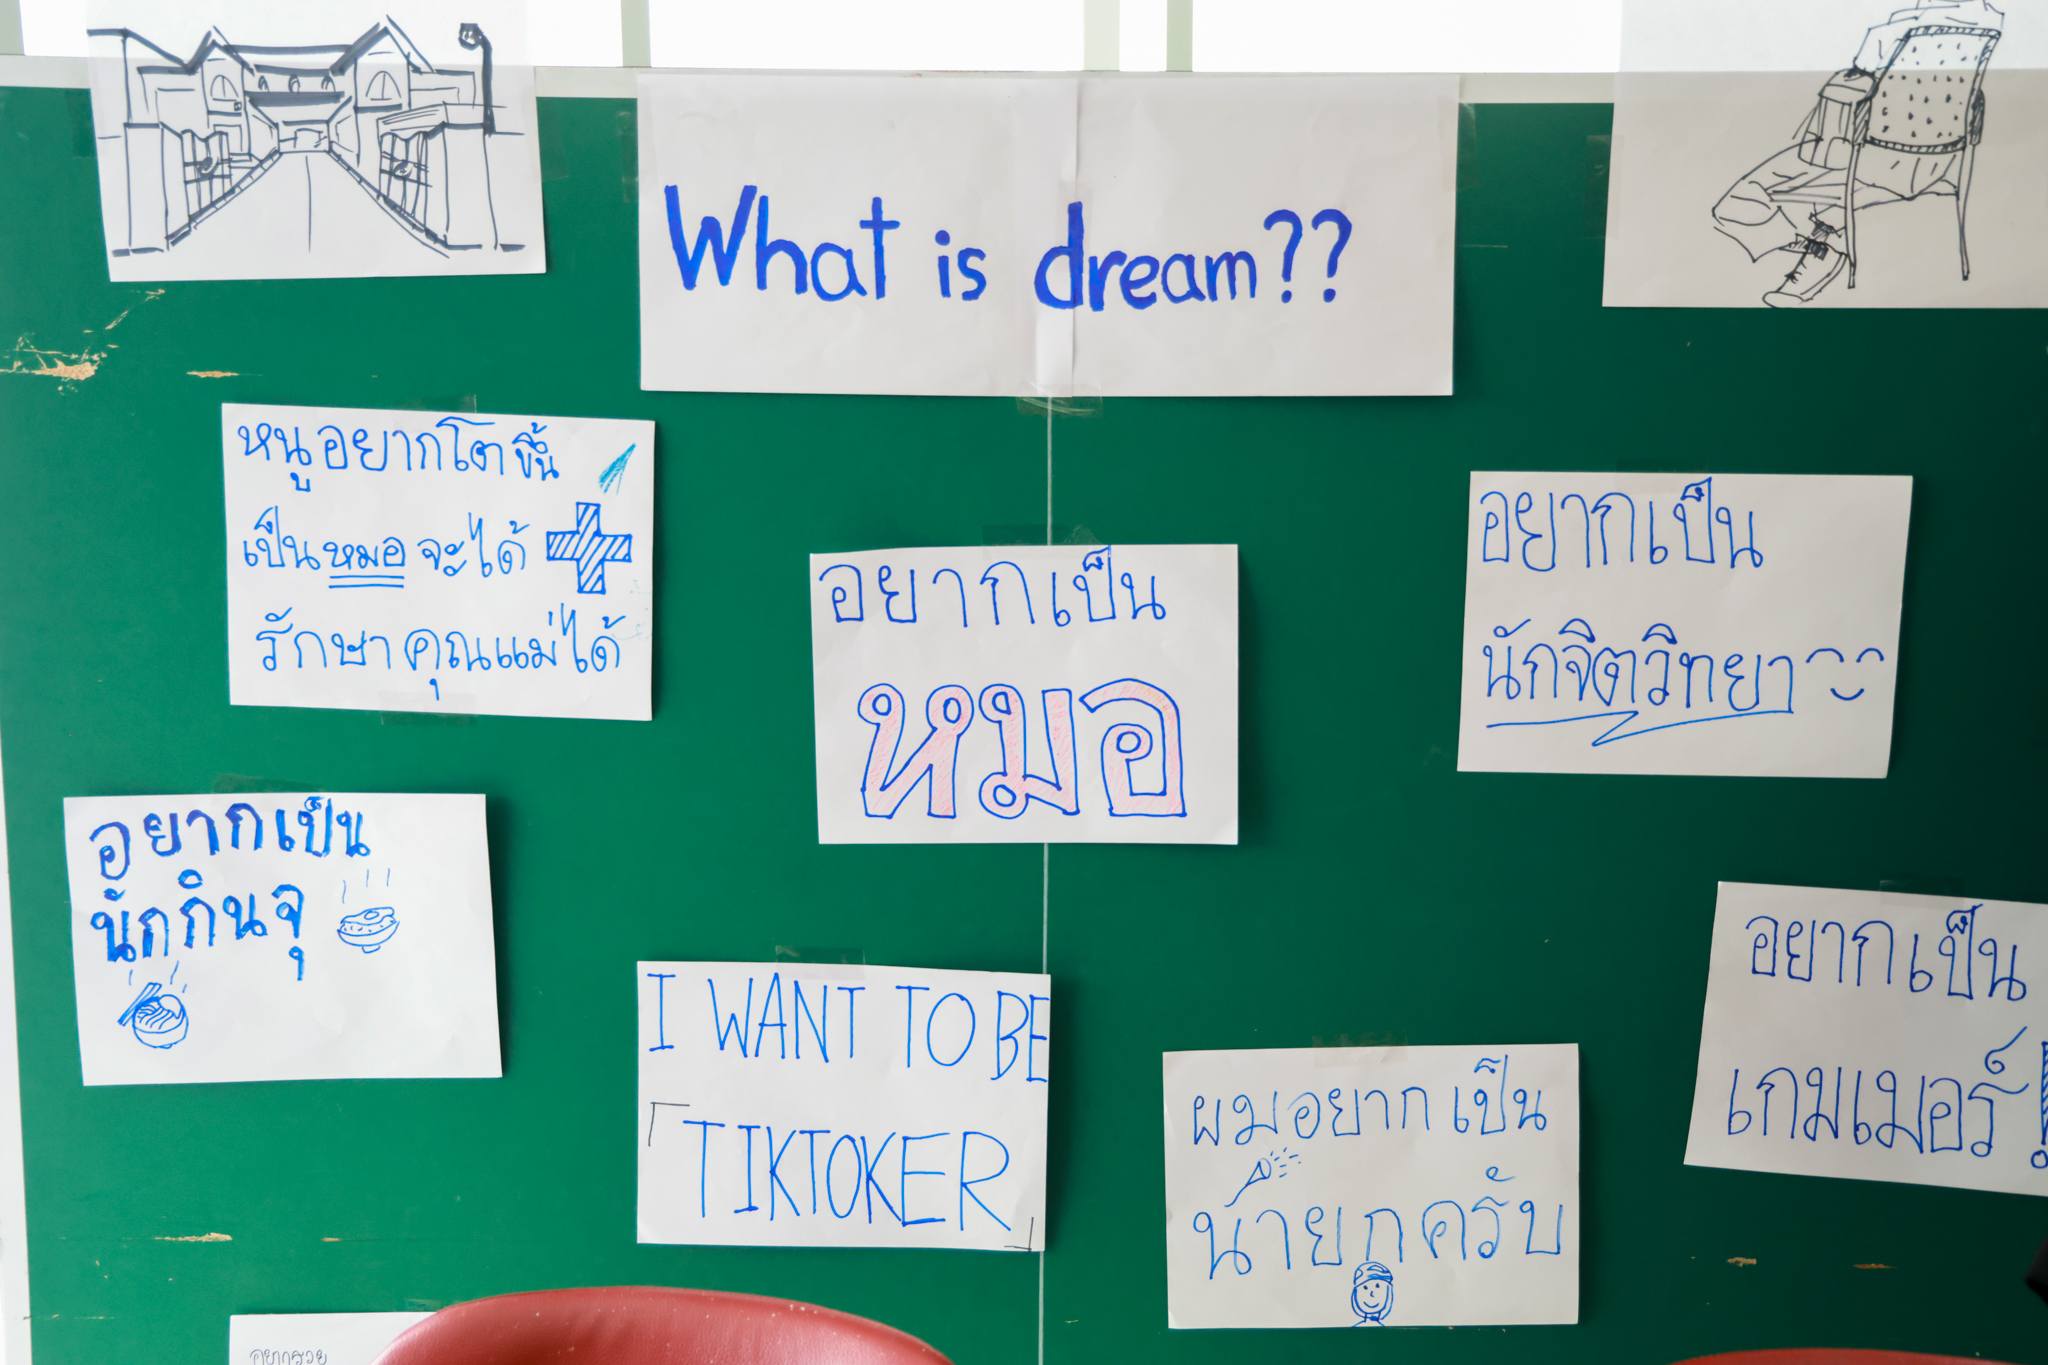 What is dream??
หนูอยากโตขึ้น
เป็นหมอจะได้
รักษาคุณแม่ได้
อยากเป็น
หมอ
อยากเป็น
นักจิตวิทยา
อยากเป็น
นักกินจุ
I WANT TO BE
「TIKTOKER」
ผมอยากเป็น
นายกครับ
อยากเป็น
เกมเมอร์!
อยากรวย